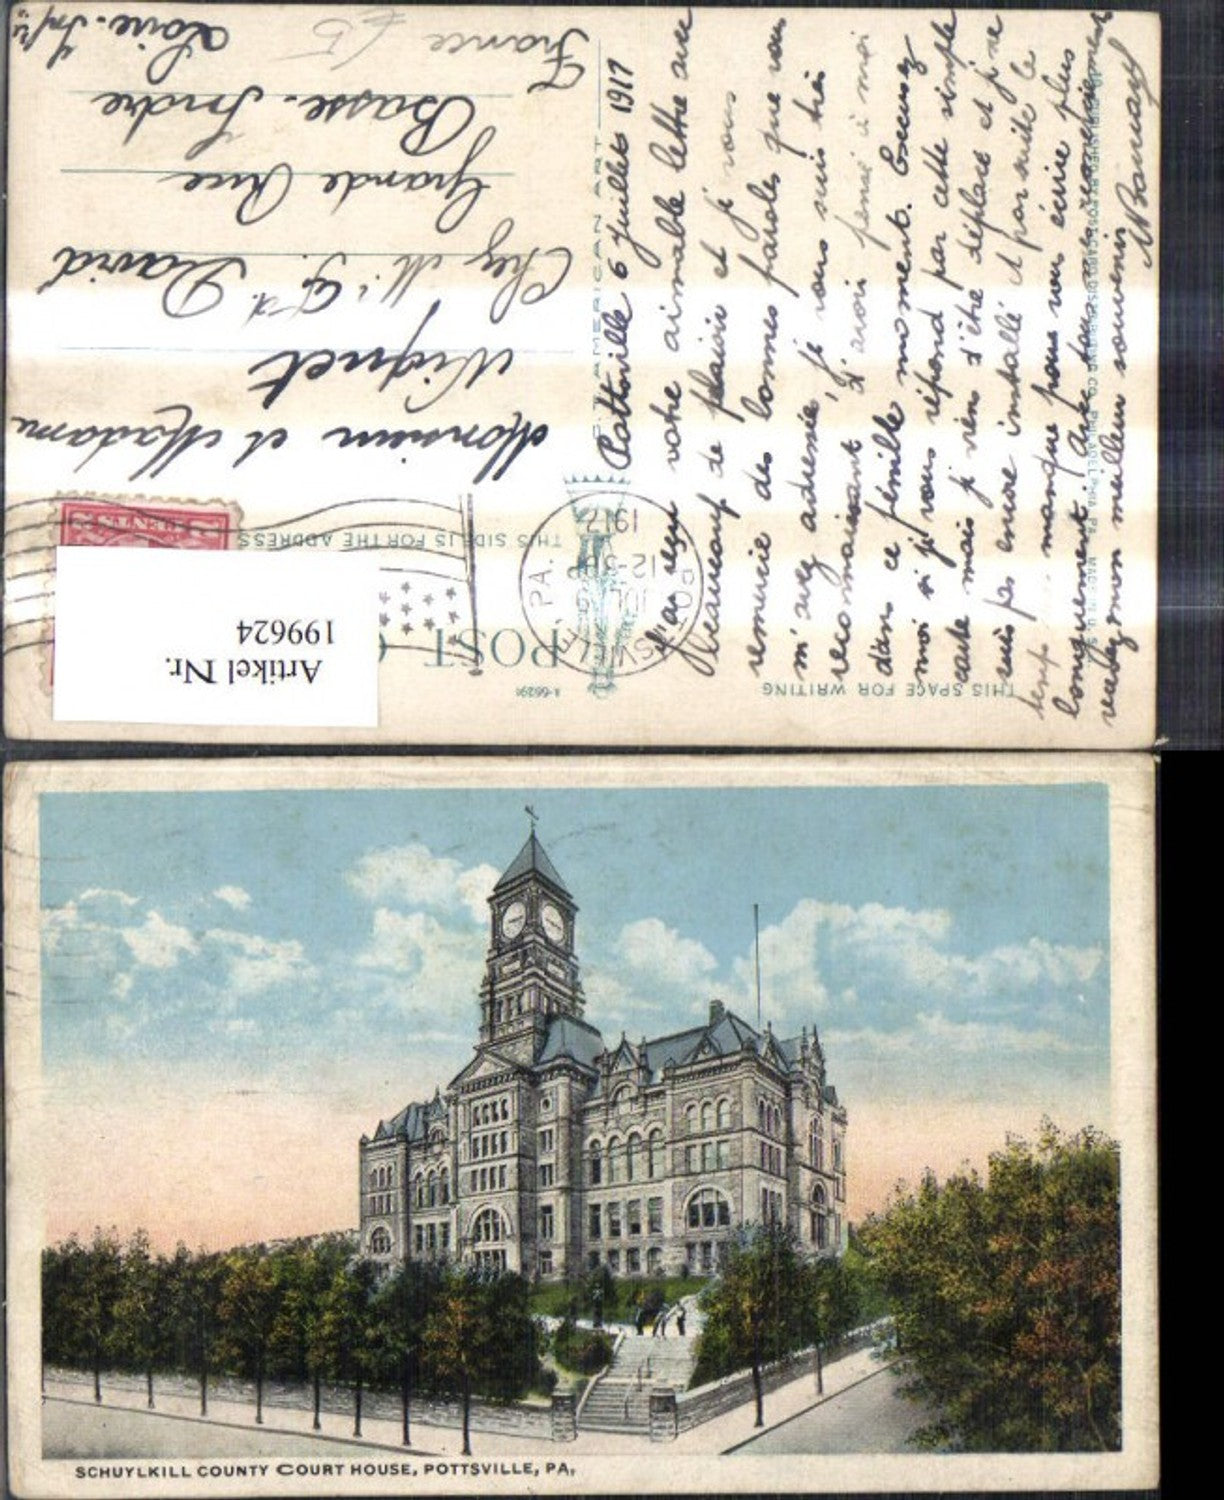 POST
THIS SPACE FOR WRITING
A-66291
THIS SIDE IS FOR THE ADDRESS
POTTSVILLE, PA.
JUL 9
12-30P
1917
2 CENTS 2
Artikel Nr.
199624
C.T. AMERICAN ART
Monsieur et Madame
Viquet
Chez Mr. Fd. David
Grande Rue
Basse-Indre
Loire-Infre
France 65
Pottsville 6 Juillet 1917
J'ai reçu votre aimable lettre avec
beaucoup de plaisir et je vous
remercie des bonnes paroles que vous
m'avez adressée, je vous suis très
reconnaissant d'avoir pensé à moi
dans ce pénible moment. Excusez
moi si je vous répond par cette simple
carte mais je viens d'être déplacé et je ne
suis pas encore installé et par suite le
temps manque pour vous écrire plus
longuement.
recevez mon meilleur souvenir
SCHUYLKILL COUNTY COURT HOUSE, POTTSVILLE, PA,